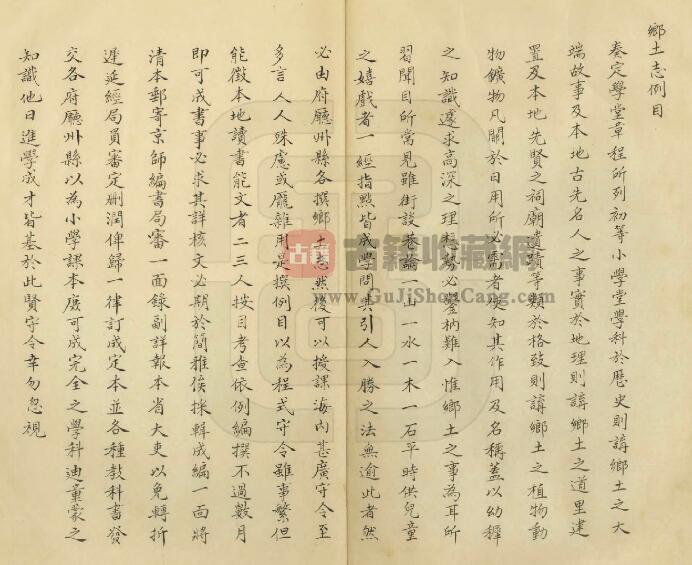 鄉土志例目
奏定學堂章程所列初等小學堂學科於歷史則講鄉土之大
端故事及本地古先名人之事實於地理則講鄉土之道里建
置及本地先賢之祠廟遺蹟等類於格致則講鄉土之植物動
物鑛物凡關於日用所必需者使知其作用及名稱蓋以幼穉
之知識遽求高深之理想勢必鑿枘難入惟鄉土之事為耳所
習聞目所常見雖街談巷論一山一水一木一石平時供兒童
之嬉戲者一經指點皆成學問其引人入勝之法無逾此者然
必由府廳州縣各撰鄉土志然後可以授課海內甚廣守令至
多言人人殊慮或龐雜用是撰例目以為程式守令雖事繁但
能徵本地讀書能文者二三人按目考查依例編撰不過數月
即可成書事必求其詳核文必期於簡雅俟採輯成編一面將
清本郵寄京師編書局審一面錄副詳報本省大吏以免轉折
遲延經局員審定刪潤俾歸一律訂成定本並各種教科書發
交各府廳州縣以為小學課本庶可成完全之學科迪童蒙之
知識他日進學成才皆基於此賢守令幸勿忽視
古籍 古籍收藏網
www.GuJiShouCang.com